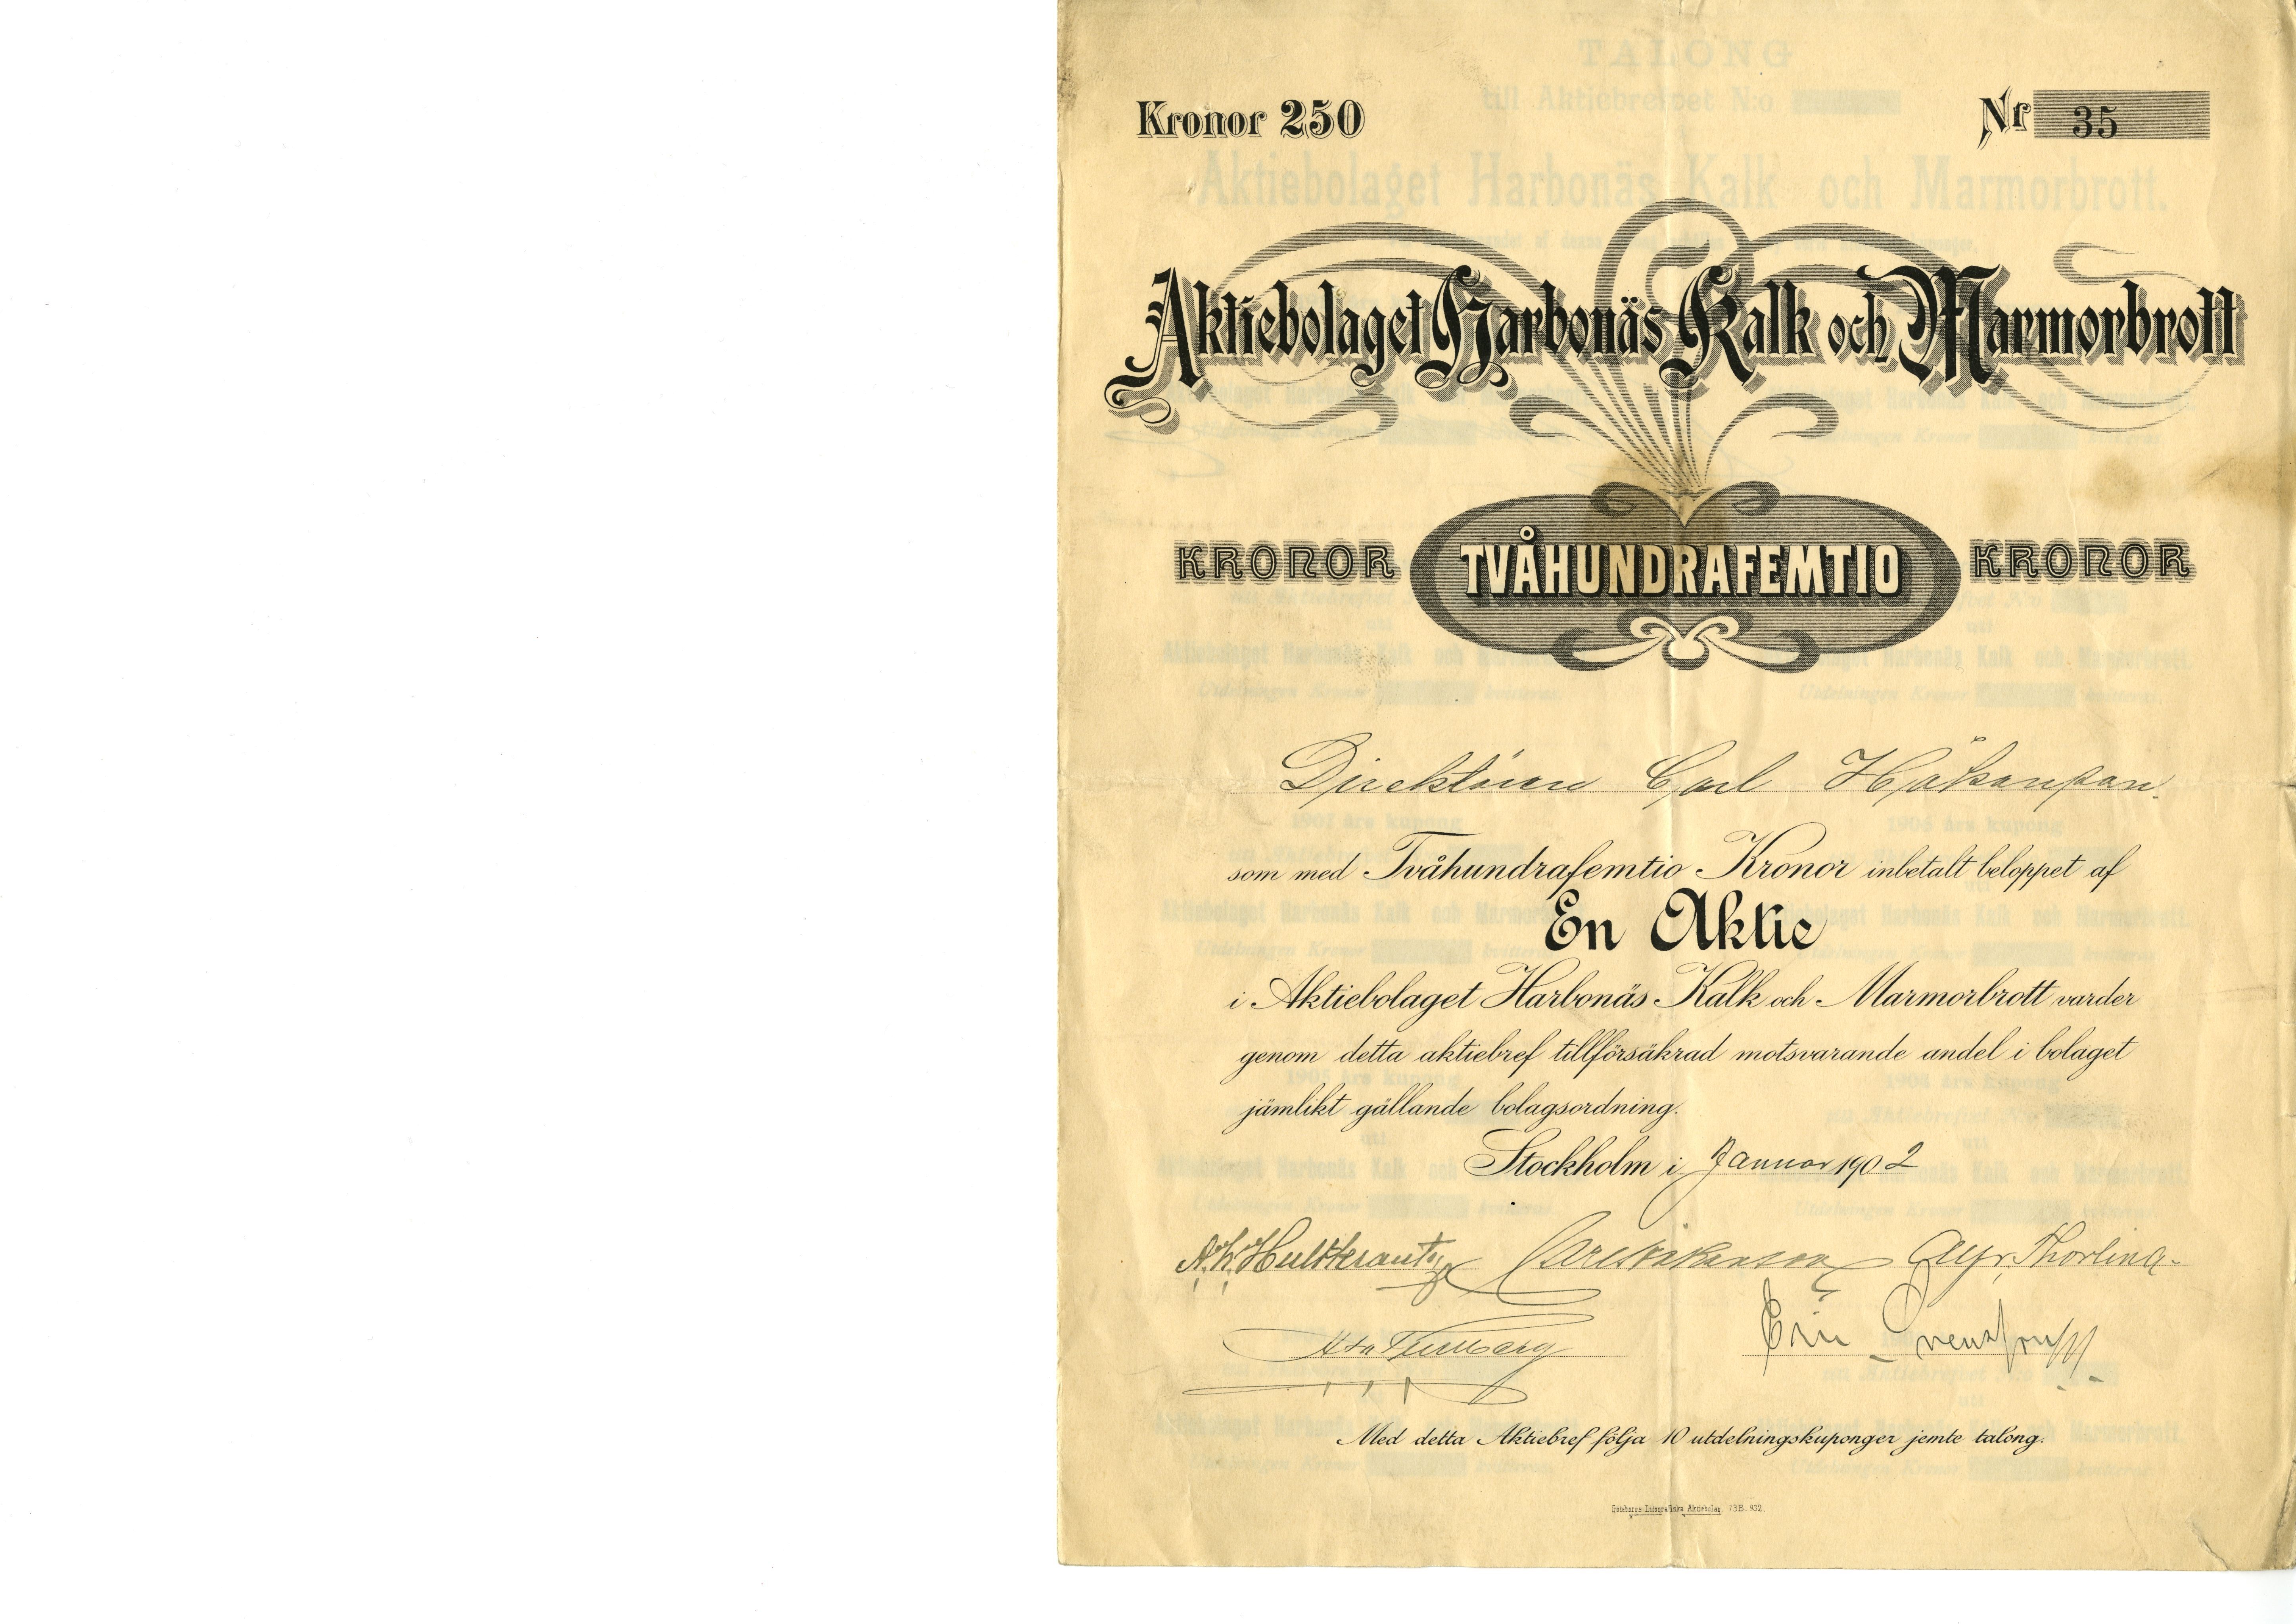 Kronor 250
Nr 35
Aktiebolaget Harbonäs Kalk och Marmorbrott
KRONOR TVÅHUNDRAFEMTIO KRONOR
Direktören Carl Håkanson.
som med Tvåhundrafemtio Kronor inbetalt beloppet af
En Aktie
i Aktiebolaget Harbonäs Kalk och Marmorbrott varder
genom detta aktiebref tillförsäkrad motsvarande andel i bolaget
jämlikt gällande bolagsordning.
Stockholm i Januar 1902
Carl Håkanson
Med detta Aktiebref följa 10 utdelningskuponger jemte talong.
Göteborgs Litografiska Aktiebolag